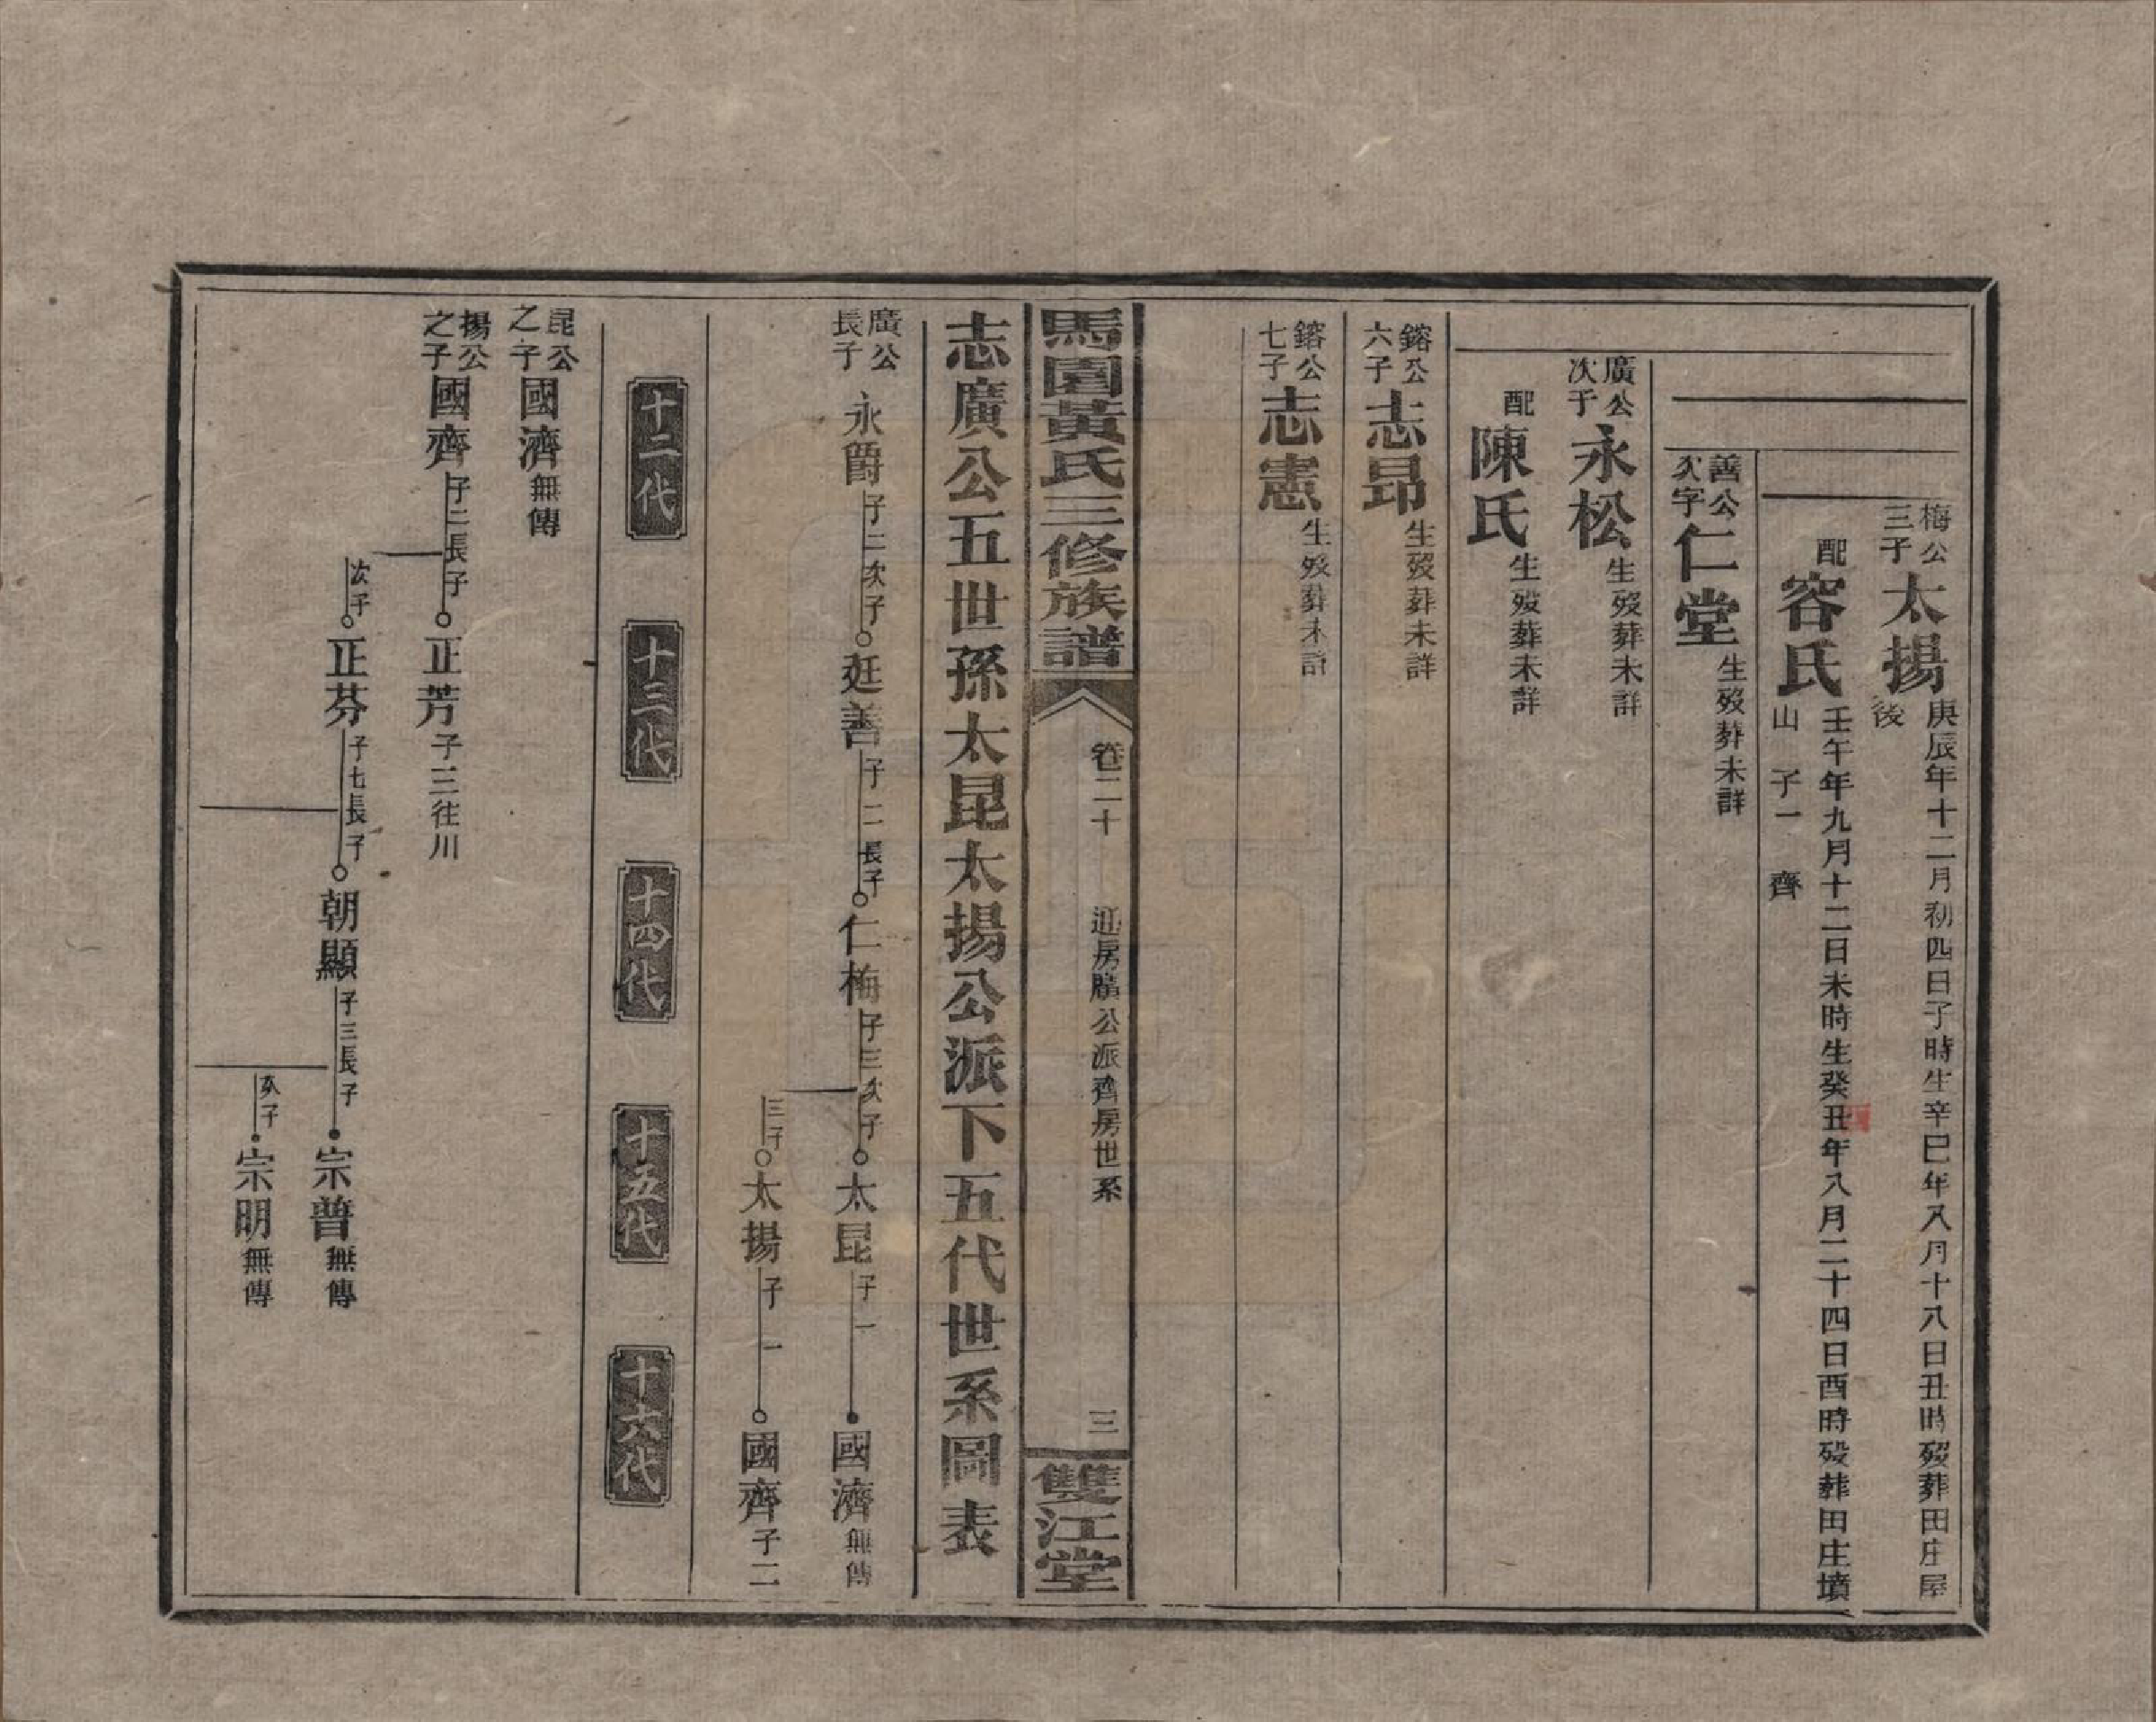 梅公三子太揚庚辰年十二月初四日子時生辛巳年八月十八日丑時歿葬田庄屋後
配容氏壬午年九月十二日未時生癸丑年八月二十四日酉時歿葬田庄墳山 子一 齊
善公次字仁堂生歿葬未詳
廣公次子永松生歿葬未詳
配陳氏生歿葬未詳
鎔公六子志昂生歿葬未詳
鎔公七子志憲生歿葬未詳
馬園黃氏三修族譜 卷二十 廷房廣公派齊房世系 三 雙江堂
志廣公五世孫太昆太揚公派下五代世系圖表
廣公長子 永爵 子二次子 廷善 子二長子 仁梅 子三次子 太昆 子一 國濟 無傳
三子 太揚 子一 國齊 子二
十二代 十三代 十四代 十五代 十六代
昆公之子國濟無傳
揚公之子國齊 子二長子 正芳 子三往川
次子 正芬 子七長子 朝顯 子三長子 宗普 無傳
次子 宗明 無傳